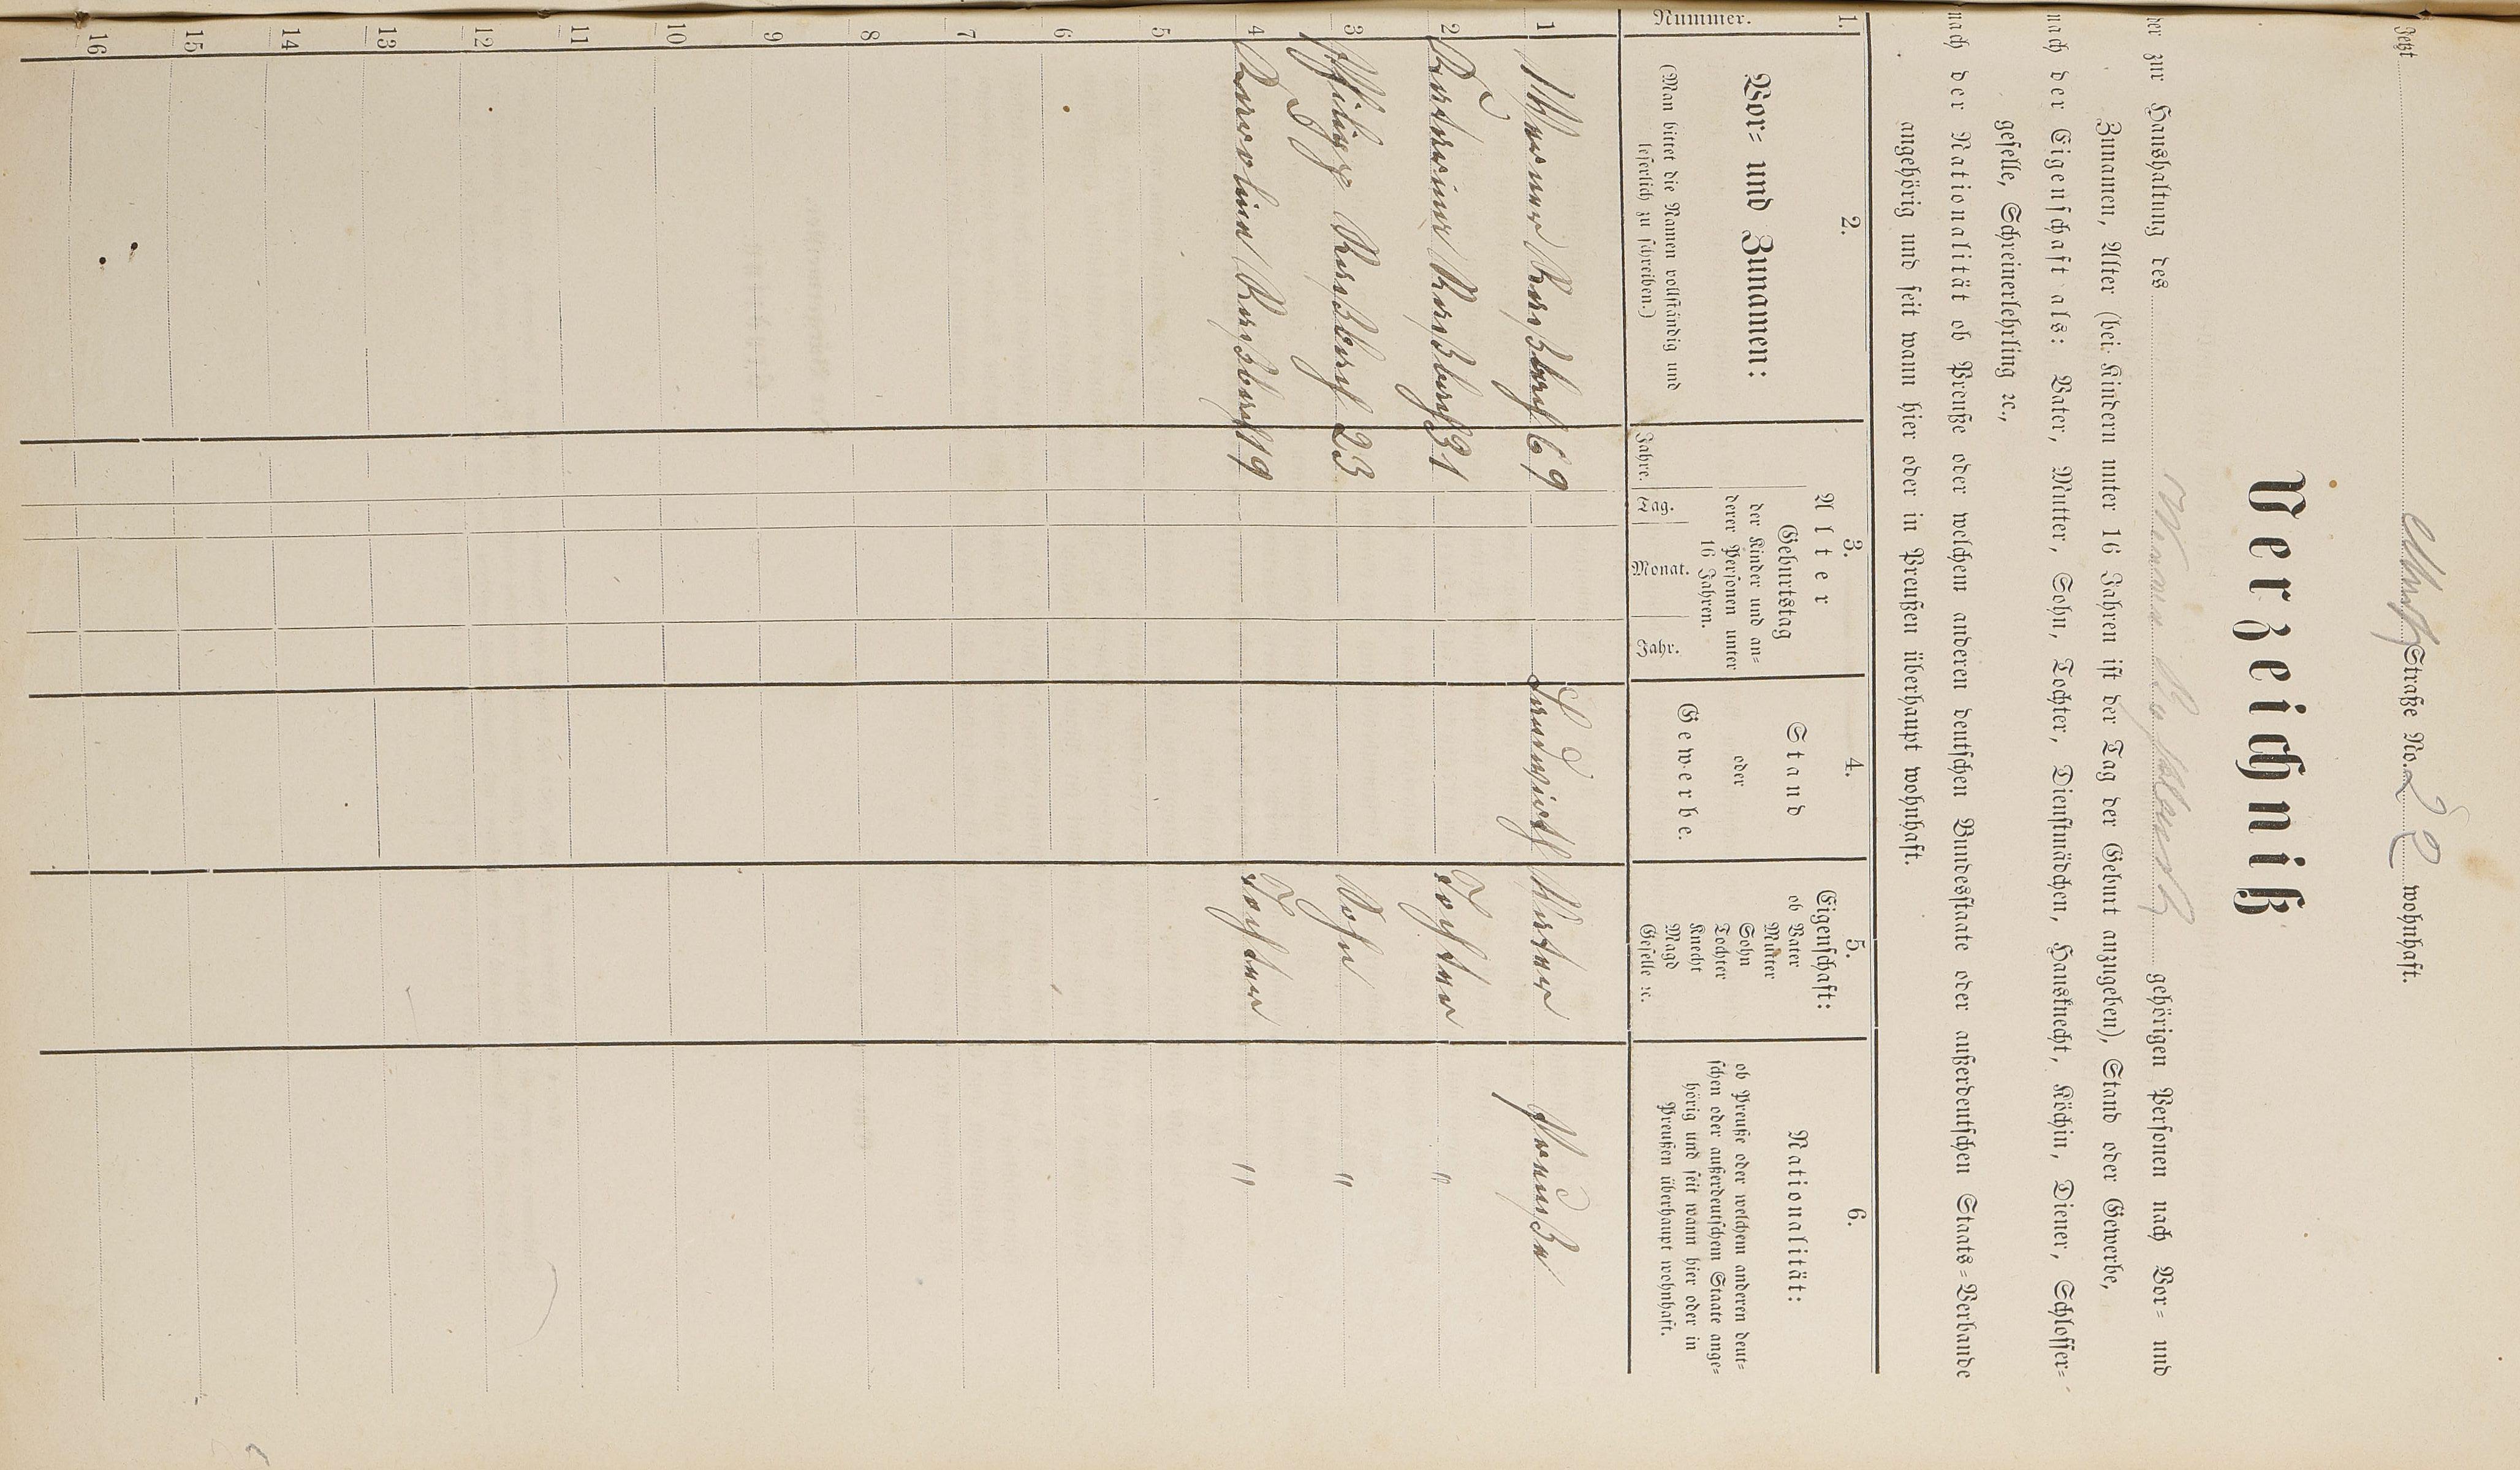 Jetzt Straße No. 22 wohnhaft.
Verzeichniß
der zur Haushaltung des gehörigen Personen nach Vor- und
Zunamen, Alter (bei Kindern unter 16 Jahren ist der Tag der Geburt anzugeben), Stand oder Gewerbe,
nach der Eigenschaft als: Vater, Mutter, Sohn, Tochter, Dienstmädchen, Hausknecht, Köchin, Diener, Schlosser-
geselle, Schreinerlehrling ꝛc.,
nach der Nationalität ob Preuße oder welchem anderen deutschen Bundesstaate oder außerdeutschen Staats-Verbande
angehörig und seit wann hier oder in Preußen überhaupt wohnhaft.
1. 2. 3. 4. 5. 6.
Nummer.
Vor- und Zunamen:
(Man bittet die Namen vollständig und
leserlich zu schreiben.)
Alter
Geburtstag
der Kinder und an-
derer Personen unter
16 Jahren.
Jahre. Tag. Monat. Jahr.
Stand
oder
Gewerbe.
Eigenschaft:
ob Vater
Mutter
Sohn
Tochter
Knecht
Magd
Geselle ꝛc.
Nationalität:
ob Preuße oder welchem anderen deut-
schen oder außerdeutschem Staate ange-
hörig und seit wann hier oder in
Preußen überhaupt wohnhaft.
1 Werner Roßbach 69 Landwirth Vater Preuße
2 Katharine Roßbach 31 Tochter "
3 Philipp Roßbach 23 Sohn "
4 Karoline Roßbach 19 Tochter "
5
6
7
8
9
10
11
12
13
14
15
16